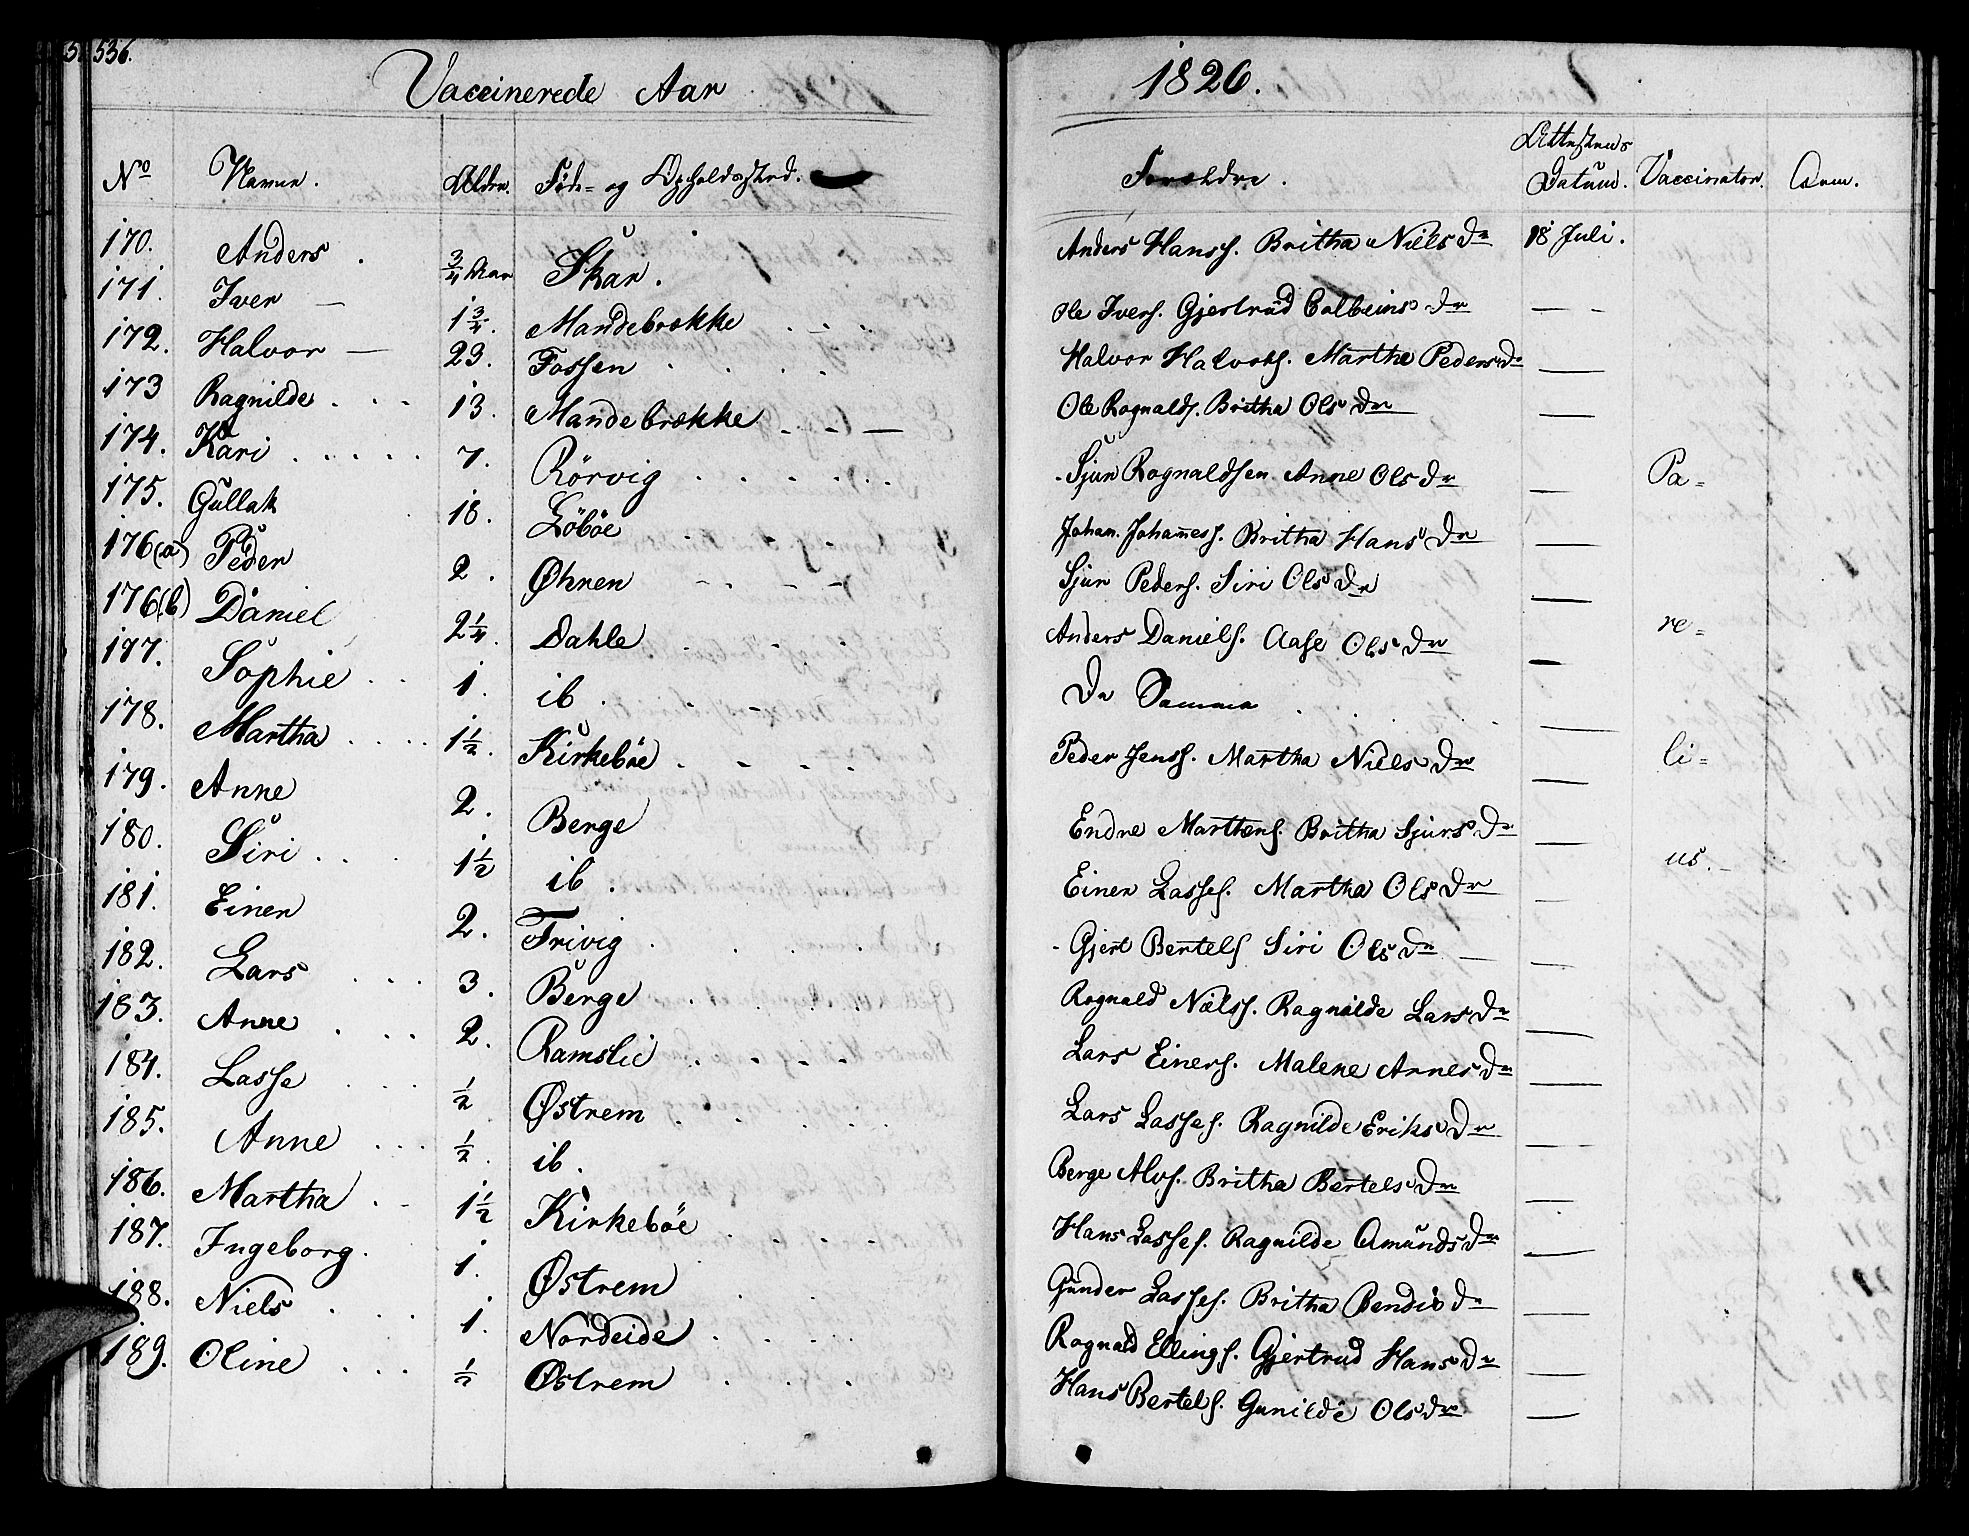 536.
Vaccinerede Aar 1826.
No Navne. Alder. Føde- og Opholdssted. Forældre. Attestens Datum. Vaccinator. Anm.
170. Anders. 3/4 Aar Skar. Anders Hanss. Britha Niels Dr 18 Juli.
171. Iver — 1 3/4. Mandebrække Ole Ivers. Gjertrud Colbeins Dr — -
172. Halvor — 23. Fossen Halvor Halvors. Martha Peders Dr —
173 Ragnilde 13. Mandebrække Ole Rognalds. Britha Ols Dr —
174. Kari 7. Rörvig Sjur Rognaldsen Anne Ols Dr — Pa=
175. Gullak 18. Löböe Johan. Johannes s. Britha Hans Dr —
176(a) Peder 2. Øhnen Sjur Peders. Siri Ols Dr —
176(b) Daniel 2 1/4. Dahle Anders Daniels. Aase Ols Dr — re=
177. Sophie 1. ib. De Samme —
178. Martha 1 1/2. Kirkeböe Peder Jenss. Martha Niels Dr — li=
179. Anne 2. Berge Endre Martens. Britha Sjurs Dr —
180. Siri 1 1/2 ib. Einer Lasses. Martha Ols Dr — us.
181. Einer 2. Trivig Gjert Bertels Siri Ols Dr —
182. Lars 3. Berge Rognald Nielss. Ragnilde Lars Dr —
183. Anne 2. Ramslie Lars Einers. Malene Arnes Dr —
184. Lasse 1/2 Østrem Lars Lasses. Ragnilde Eriks Dr —
185. Anne 1/2. ib. Berge Alvs. Britha Bertels Dr —
186. Martha 1 1/2 Kirkeböe Hans Lasses. Ragnilde Amunds Dr —
187. Ingeborg. 1. Østrem Gunder Lasses. Britha Bendis Dr —
188. Niels 1. Nordeide Rognald Ellings. Gjertrud Hans Dr —
189. Oline 1/2 Østrem Hans Bertels. Gunilde Ols Dr —